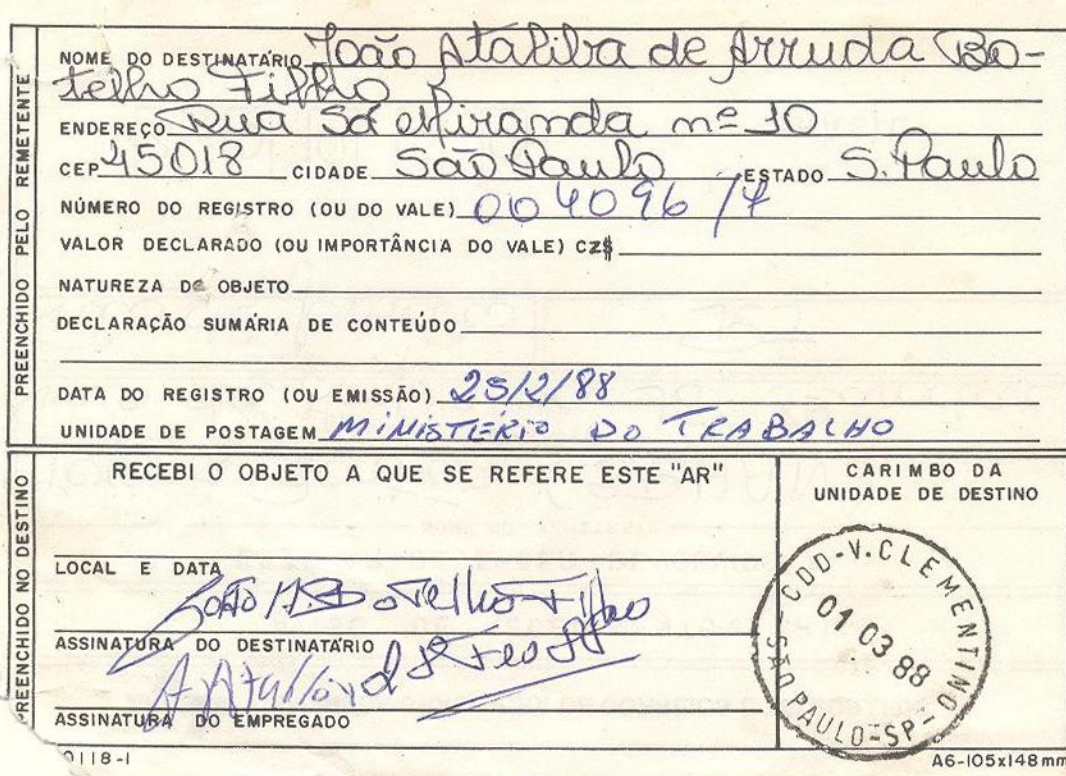 NOME DO DESTINATÁRIO João Ataliba de Arruda Bo-
telho Filho
ENDEREÇO Rua Sá Miranda nº 10
CEP 45018 CIDADE São Paulo ESTADO S. Paulo
NÚMERO DO REGISTRO (OU DO VALE) 004096/7
VALOR DECLARADO (OU IMPORTÂNCIA DO VALE) CZ$
NATUREZA DO OBJETO
DECLARAÇÃO SUMÁRIA DE CONTEÚDO
DATA DO REGISTRO (OU EMISSÃO) 25/2/88
UNIDADE DE POSTAGEM MINISTÉRIO DO TRABALHO
PREENCHIDO PELO REMETENTE
RECEBI O OBJETO A QUE SE REFERE ESTE "AR"
LOCAL E DATA
João A. Botelho Filho
ASSINATURA DO DESTINATÁRIO
ASSINATURA DO EMPREGADO
PREENCHIDO NO DESTINO
CARIMBO DA
UNIDADE DE DESTINO
CDD-V.CLEMENTINO
01 03 88
SÃO PAULO-SP-
0118-1
A6-105x148mm